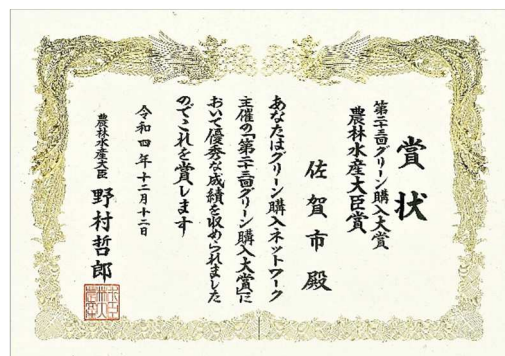 賞状
第二十三回グリーン購入大賞
農林水産大臣賞
佐賀市殿
あなたはグリーン購入ネットワーク
主催の「第二十三回グリーン購入大賞」に
おいて優秀な成績を収められました
のでこれを賞します
令和四年十二月十二日
農林水産大臣 野村哲郎